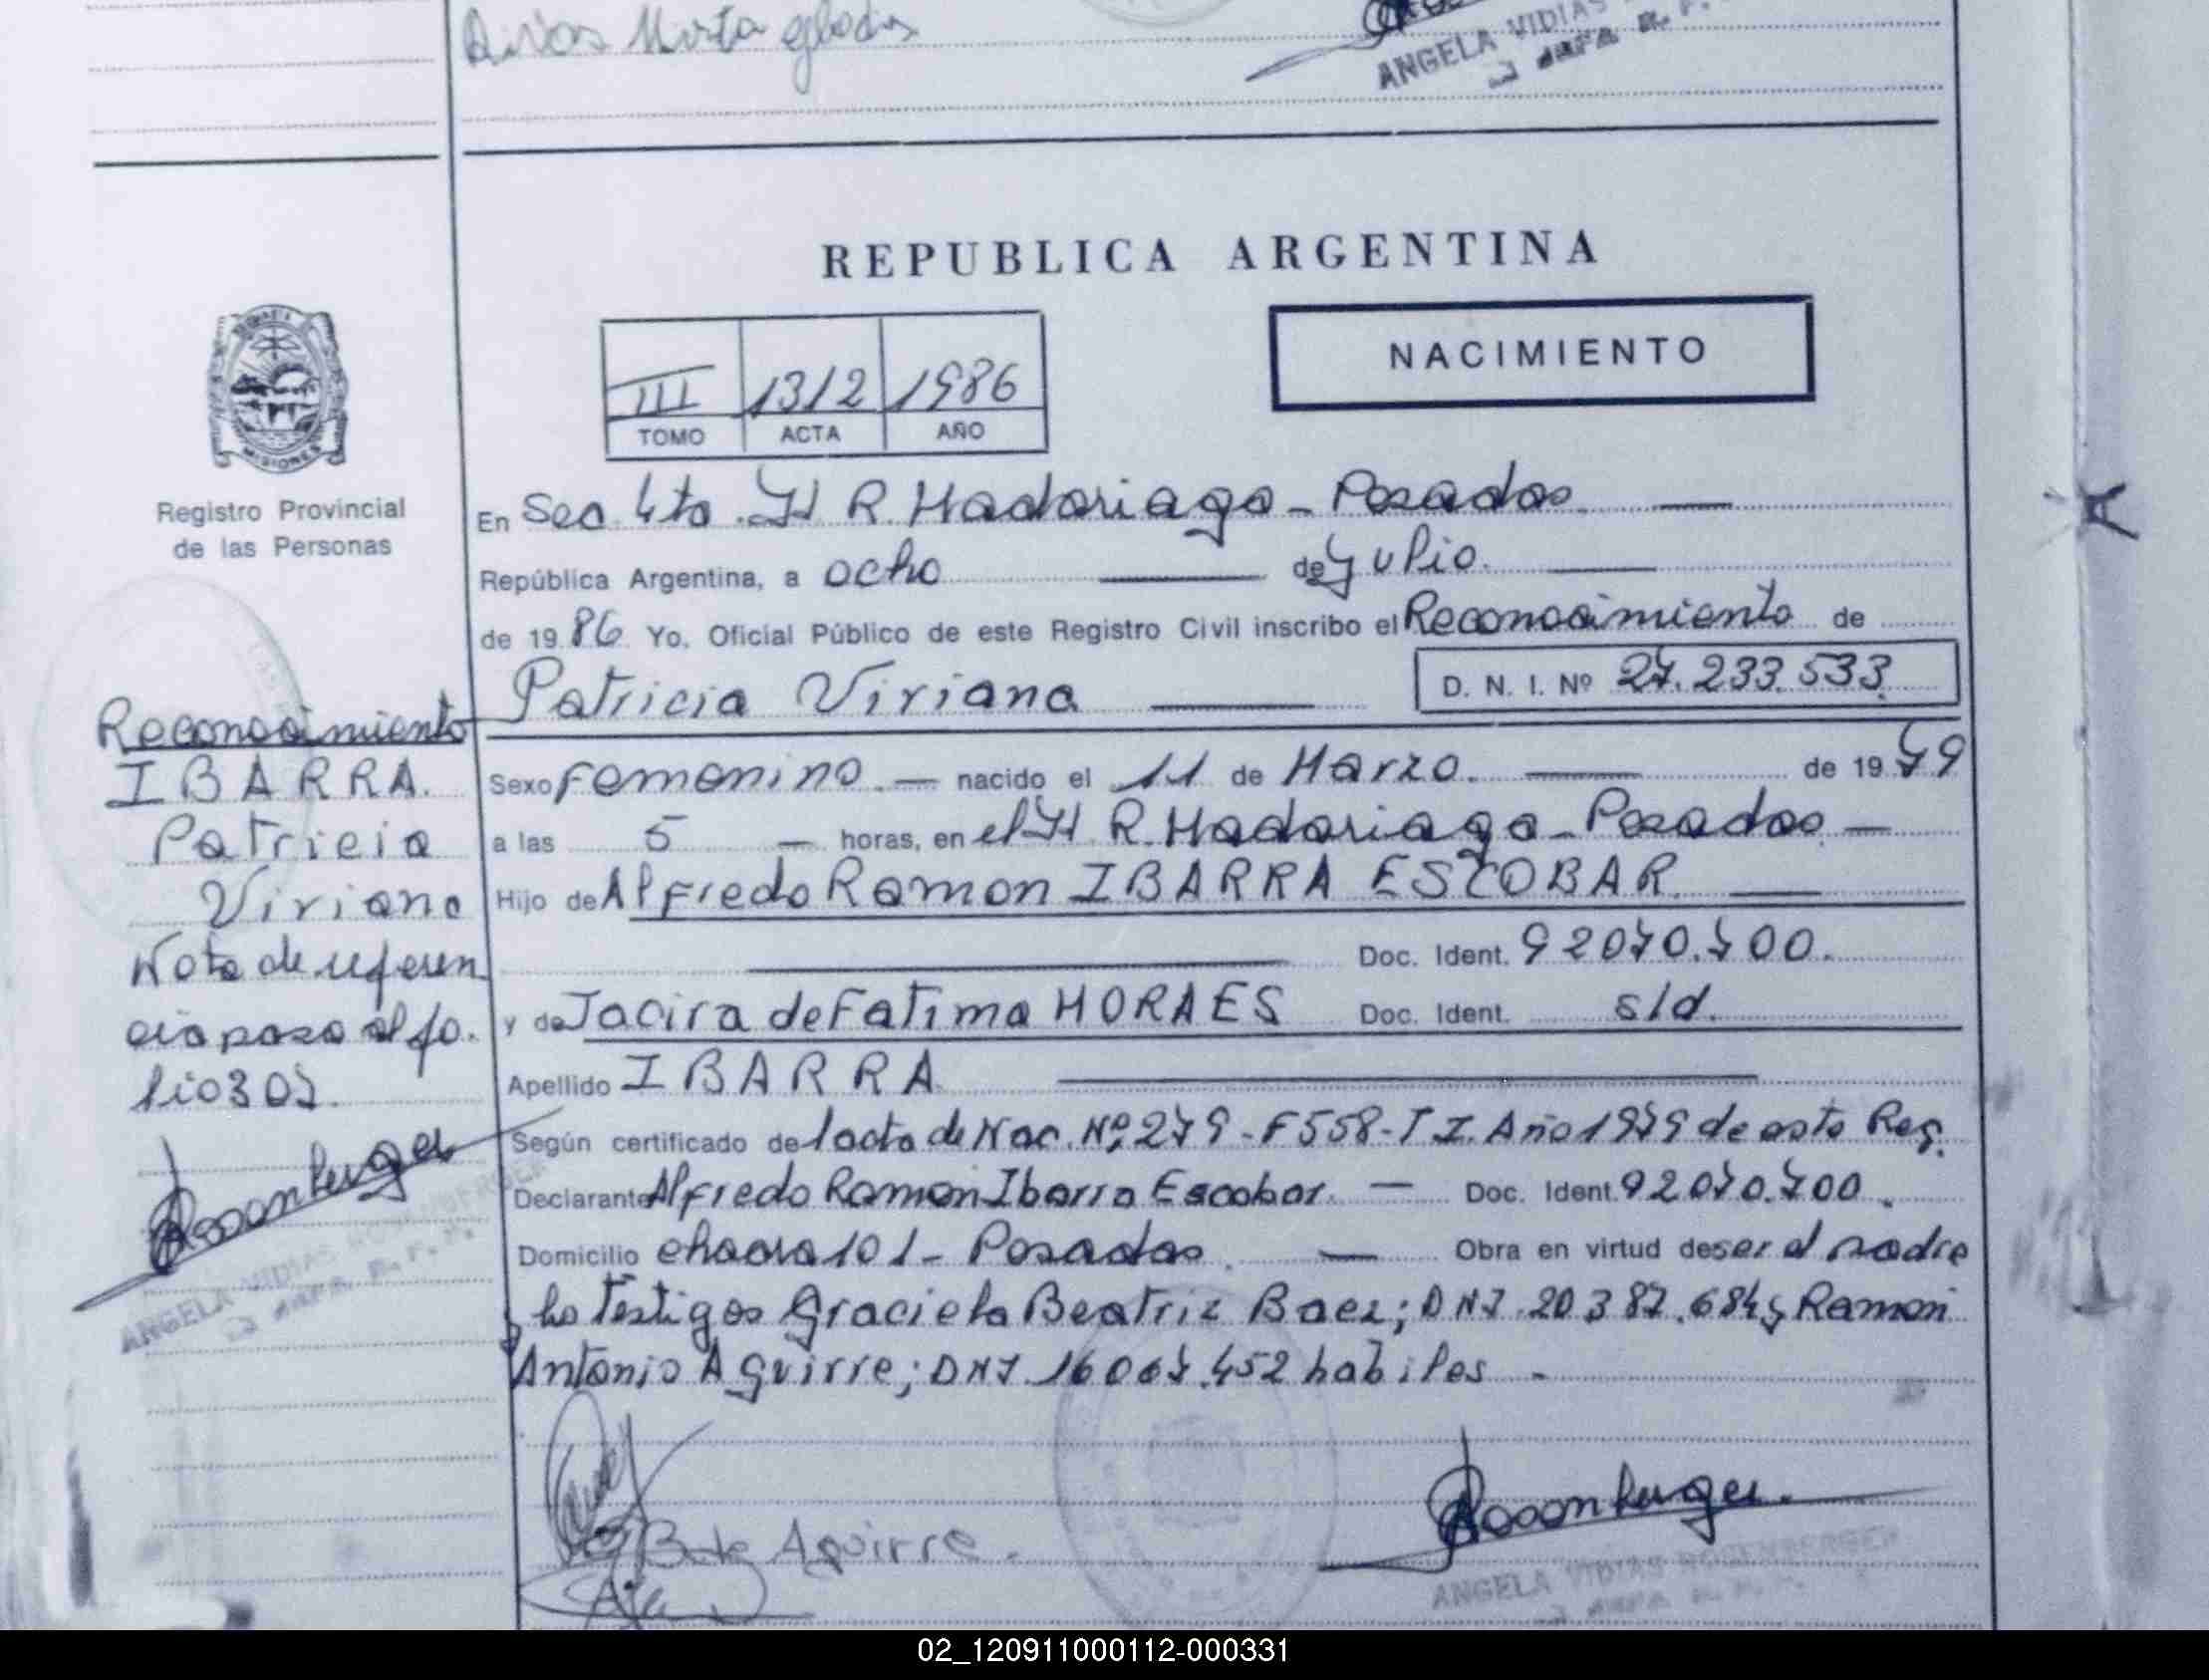 Mirta Gladis
ANGELA VIDIAS
REPUBLICA ARGENTINA
NACIMIENTO
III 1312 1986
TOMO ACTA AÑO
MISIONES
Registro Provincial
de las Personas
En Sec 4ta. H R. Madariaga - Posadas.
República Argentina, a ocho de Julio.
de 1986 Yo, Oficial Público de este Registro Civil inscribo el Reconocimiento de
Patricia Viviana D. N. I. Nº 27.233.533
Reconocimiento
IBARRA.
Patricia
Viviana
Nota de referen
cia pasa al fo.
lio 307.
Rosemberger
ANGELA VIDIAS ROSEMBERGER
Sexo femenino. — nacido el 11 de Marzo. de 1979
a las 5 — horas, en el H R. Madariaga - Posadas —
Hijo de Alfredo Ramon IBARRA ESCOBAR.
Doc. Ident. 92070.700.
y de Jacira de Fatima MORAES Doc. Ident. s/d.
Apellido IBARRA
Según certificado de l acta de Nac. Nº 279 - F 558 - T I. Año 1979 de este Reg.
Declarante Alfredo Ramon Ibarra Escobar. — Doc. Ident. 92070.700.
Domicilio chacra 101 - Posadas. — Obra en virtud de ser el padre
los Testigos Graciela Beatriz Baez; DNI. 20.387.684 y Ramon
Antonio Aguirre; DNI 16067.452 habiles -
Aguirre.
Rosemberger.
ANGELA VIDIAS ROSEMBERGER
02_120911000112-000331